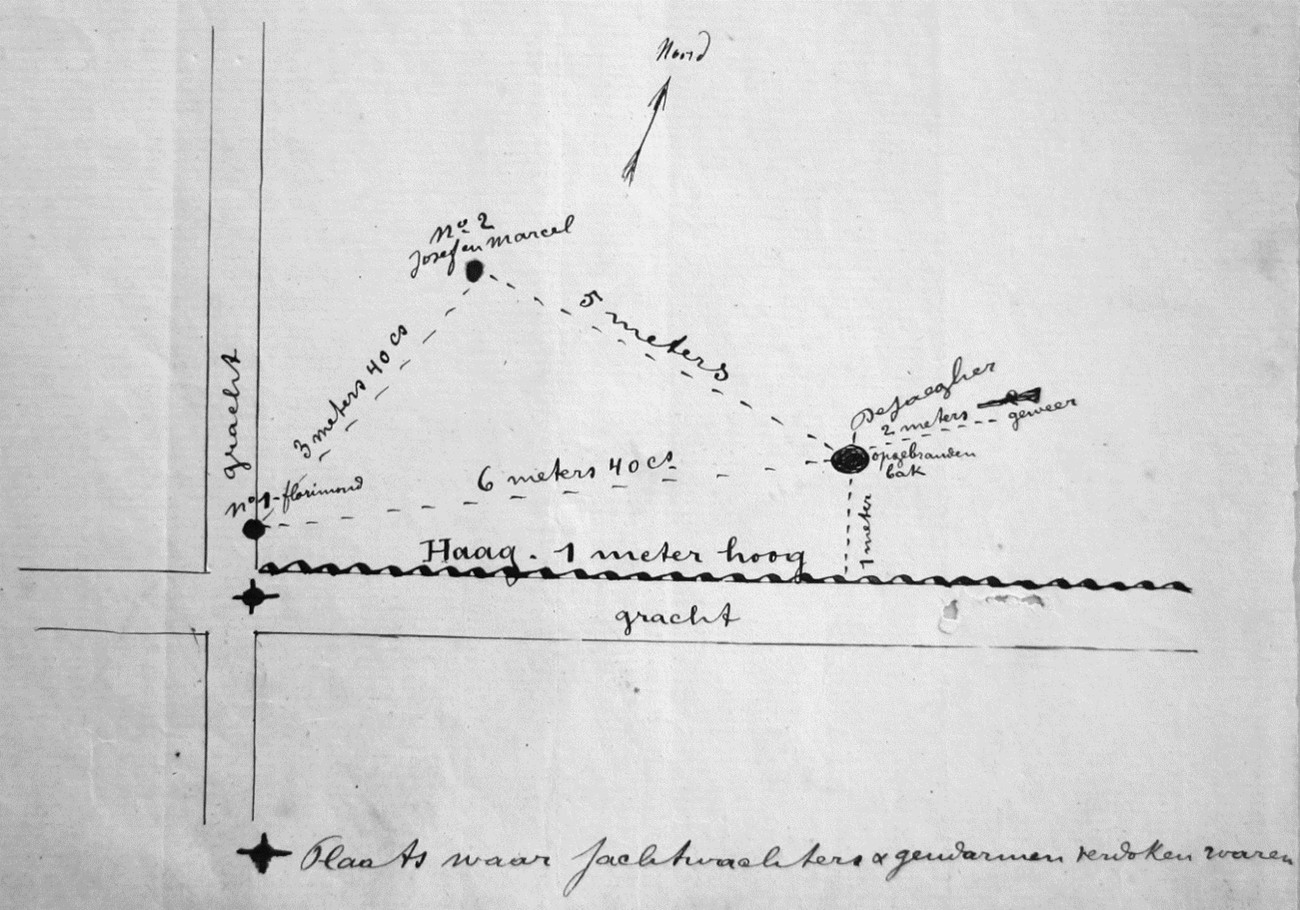 Noord
No 2
Josef en Marcel
3 meters 40 cs
5 meters
gracht
No 1 - florimond
6 meters 40 cs
DeJaegher
2 meters
geweer
opgebranden
bak
1 meter
Haag. 1 meter hoog
gracht
Plaats waar jachtwachters & gendarmen verdoken waren